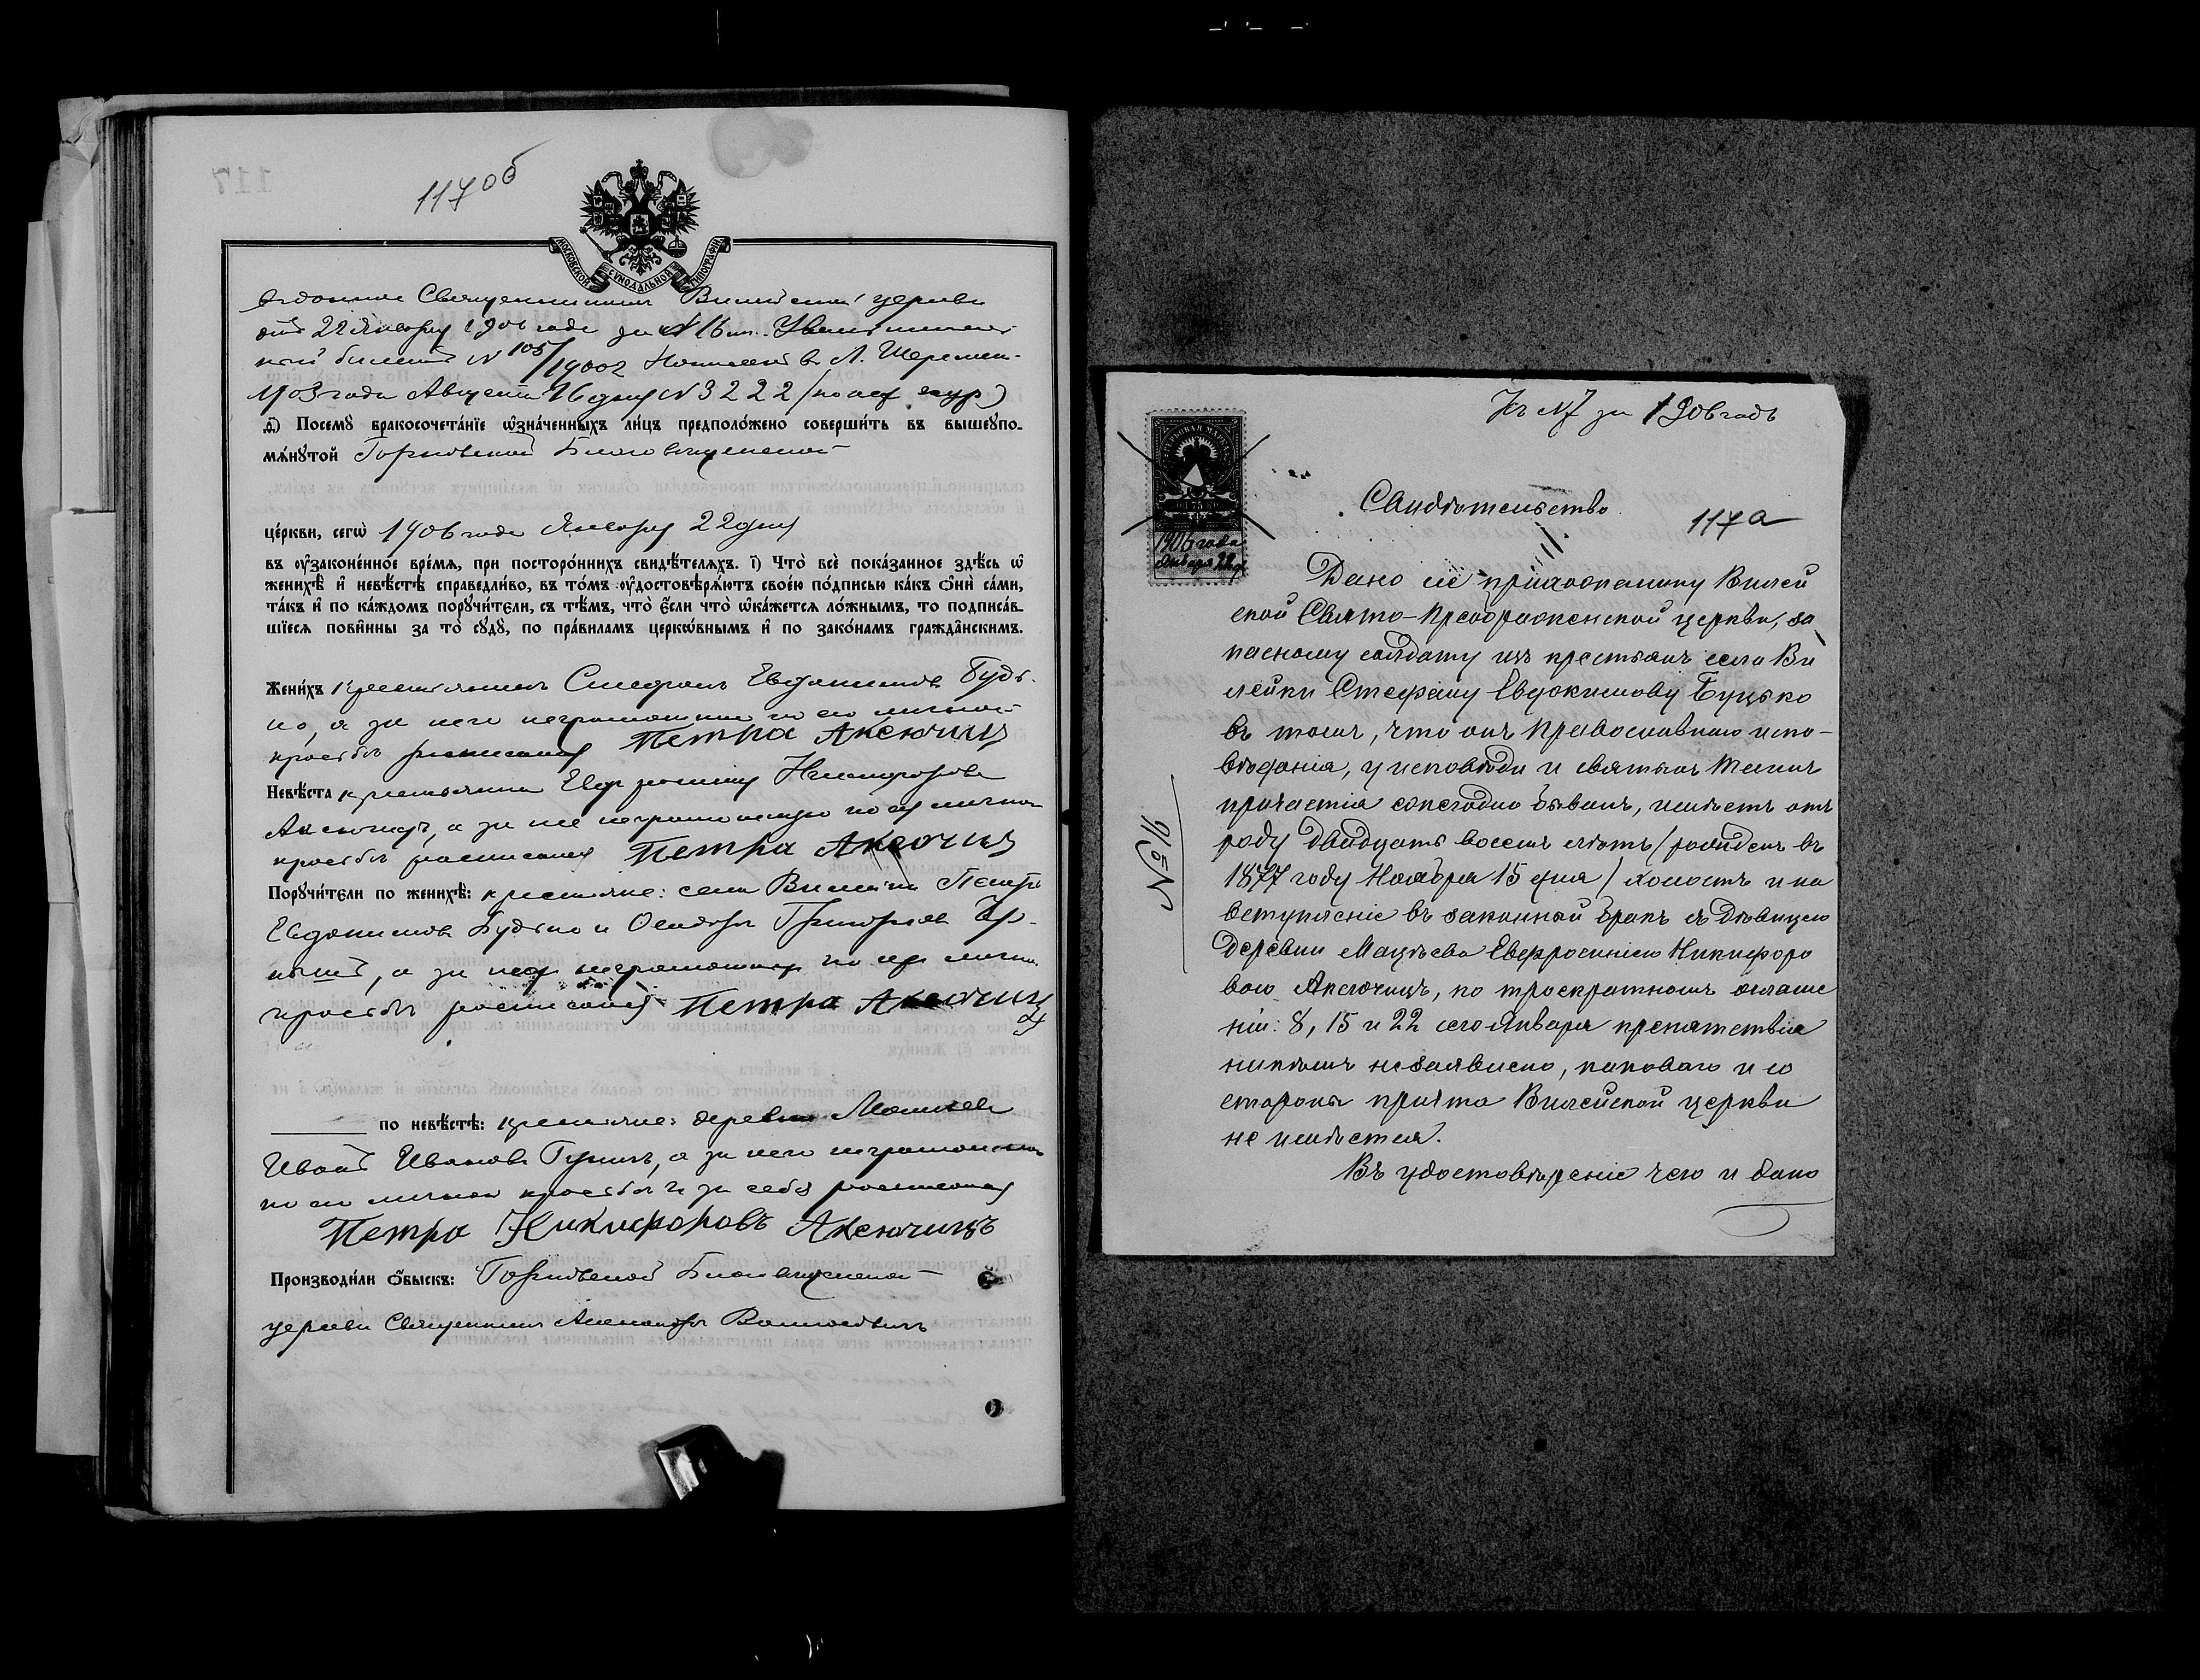 117об
117
МОСКОВСКОЙ СѴНОДАЛЬНОЙ ТИПОГРАФІИ
выданное Священникомъ Вилейской церкви
отъ 22 Января 1906 года за № 16
билетъ № 105/19002
1903 года Августа 16 дня № 3222
ѳ҃) Посемꙋ̀ бракосочета́нїе ѡ҆зна́ченныхъ ли́цъ предполо́жено соверши́ть въ вышеꙋпо-
мѧ́нꙋтой Горковской Благовѣщенской
це́ркви, сегѡ̀ 1906 года Января 22 дня
въ ᲂу҆зако́не́нное вре́мѧ, при посторо́ннихъ свидѣ́телѧхъ. і҃) Что̀ всѐ пока́занное здѣ́сь ѡ҆
женихѣ̀ и҆ невѣ́стѣ справедли́во, въ то́мъ ᲂу҆достовѣрѧ́ютъ свое́ю по́дписью ка́къ ѻ҆нѝ са́ми,
та́къ и҆ по ка́ждомъ порꙋчи́тели, съ тѣ́мъ, что̀ є҆́сли что̀ ѡ҆ка́жетсѧ ло́жнымъ, то подписа́в-
шїесѧ пови́нны за то̀ сꙋдꙋ̀, по пра́виламъ церко́внымъ и҆ по зако́намъ гражда́нскимъ.
Жени́хъ крестьянинъ Стефанъ Евдокимовъ Будь-
ко, а за него неграмотнаго по его личной
просьбѣ росписался Петра Аксючиц
Невѣ́ста крестьянка Евфросинія Никифорова
Аксючицъ, а за нее неграмотную по ея личной
просьбѣ росписался Петра Аксючиц
Порꙋчи́тели по женихѣ̀: крестьяне: села Вилейки Петръ
Евдокимовъ Будько и Григорьевъ
а за них неграмотных по их личной
просьбѣ росписался Петра Аксючиц
по невѣ́стѣ: крестьяне: деревни
Иванъ Ивановъ а за него неграмотнаго
по его личной просьбѣ и за себя росписался
Петра Никифоровъ Аксючицъ
Производи́ли ѻ҆́быскъ: Горковской Благовѣщенской
церкви Священникъ Александръ
Къ №7 за 1906 годъ
ГЕРБОВАЯ МАРКА
75 КОП
1906 года
Января 22 д
Свидѣтельство.
117а
Дано сіе прихожанину Вилей
ской Свято-Преображенской церкви, за
пасному солдату изъ крестьянъ села Ви
лейки Стефану Евдокимову Будько
въ томъ, что онъ Православнаго испо-
вѣданія, у исповѣди и святыхъ Таинъ
причастія ежегодно бывалъ, имѣетъ отъ
роду двадцать восемь лѣтъ (рожденъ въ
1877 году Ноября 15 дня) холостъ и на
вступленіе въ законный бракъ съ дѣвицею
деревни Мацѣева Евфросиніею Никифоро
вою Аксючицъ, по троекратномъ оглаше
ніи: 8, 15 и 22 сего Января препятствія
никѣмъ не заявлено, каковаго и со
стороны причта Вилейской церкви
не имѣется.
Въ удостовѣреніе чего и дано
№ 16